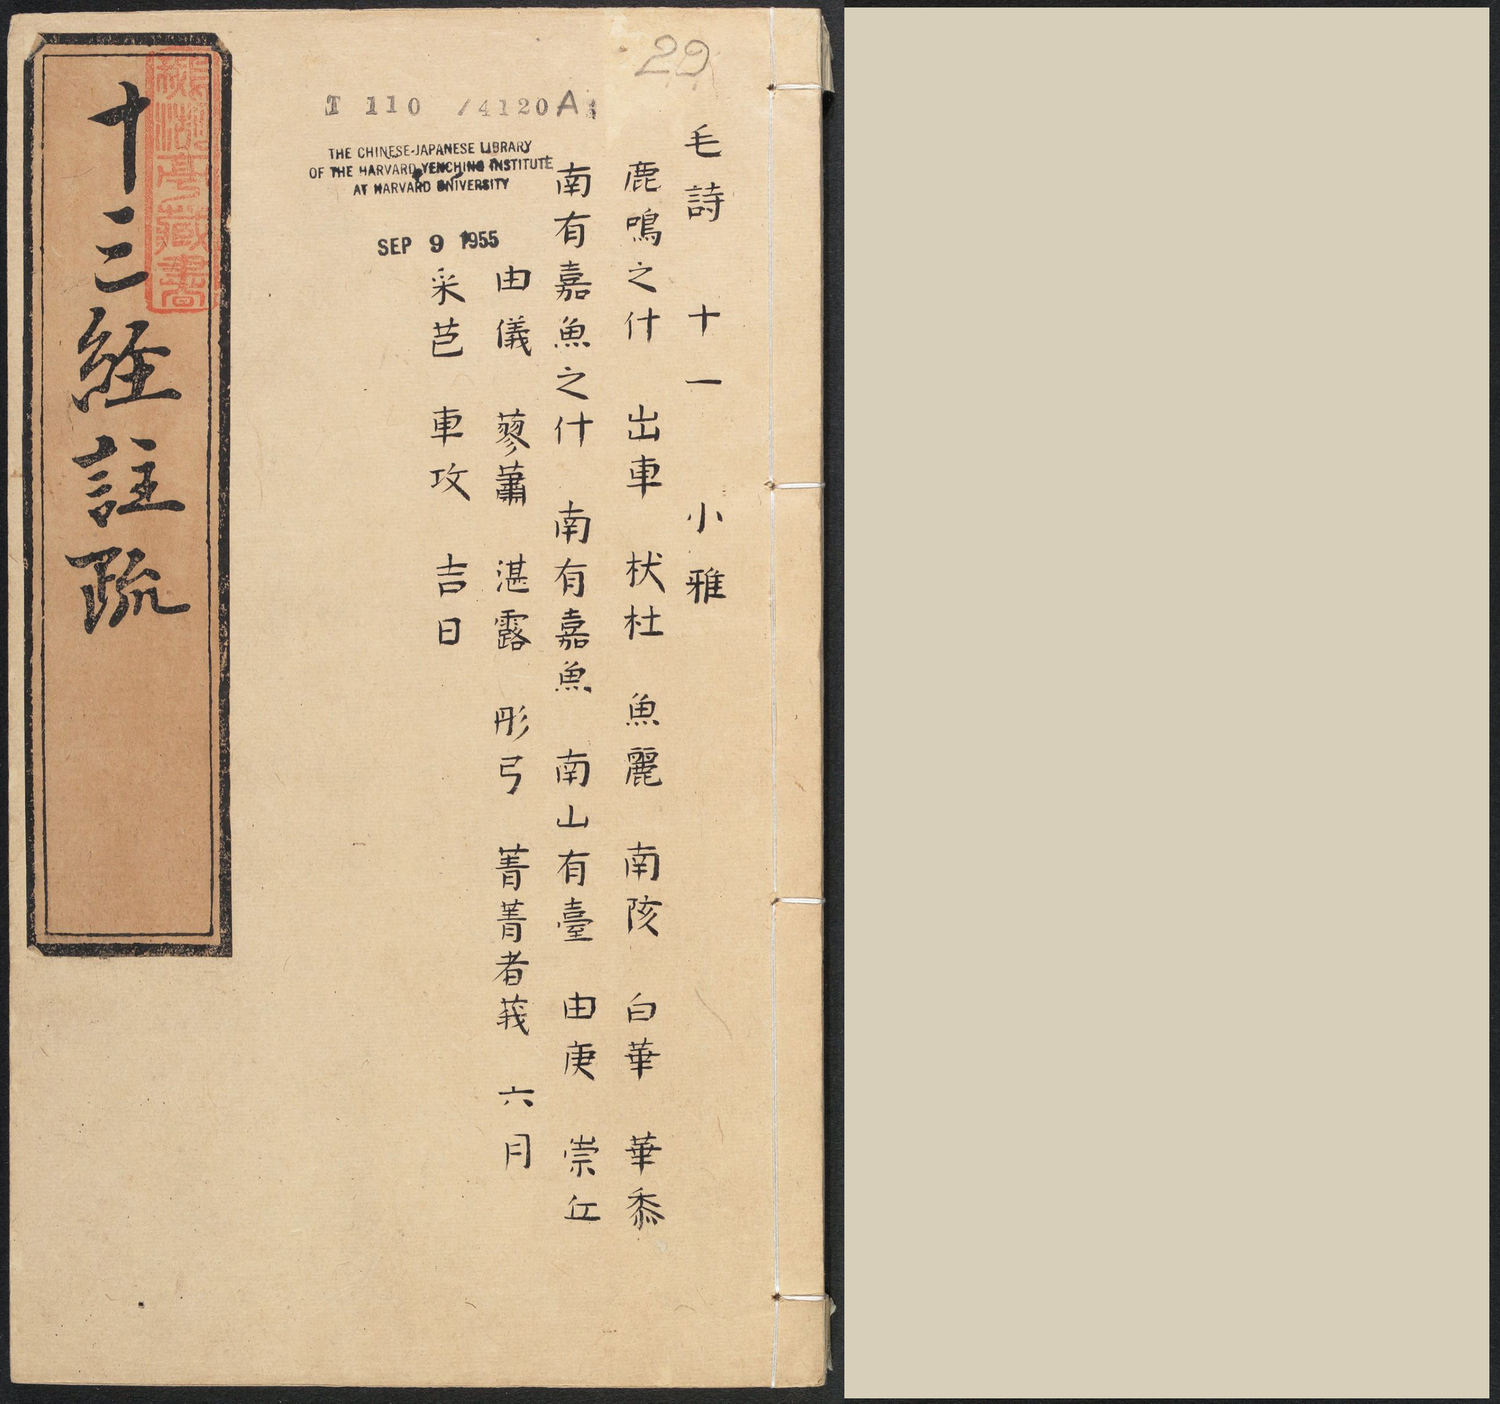 29
毛詩 十一 小雅
鹿鳴之什 出車 杕杜 魚麗 南陔 白華 華黍
南有嘉魚之什 南有嘉魚 南山有臺 由庚 崇丘
由儀 蓼蕭 湛露 彤弓 菁菁者莪 六月
采芑 車攻 吉日
T 110 /4120A
THE CHINESE-JAPANESE LIBRARY
OF THE HARVARD-YENCHING INSTITUTE
AT HARVARD UNIVERSITY
SEP 9 1955
十三経註疏